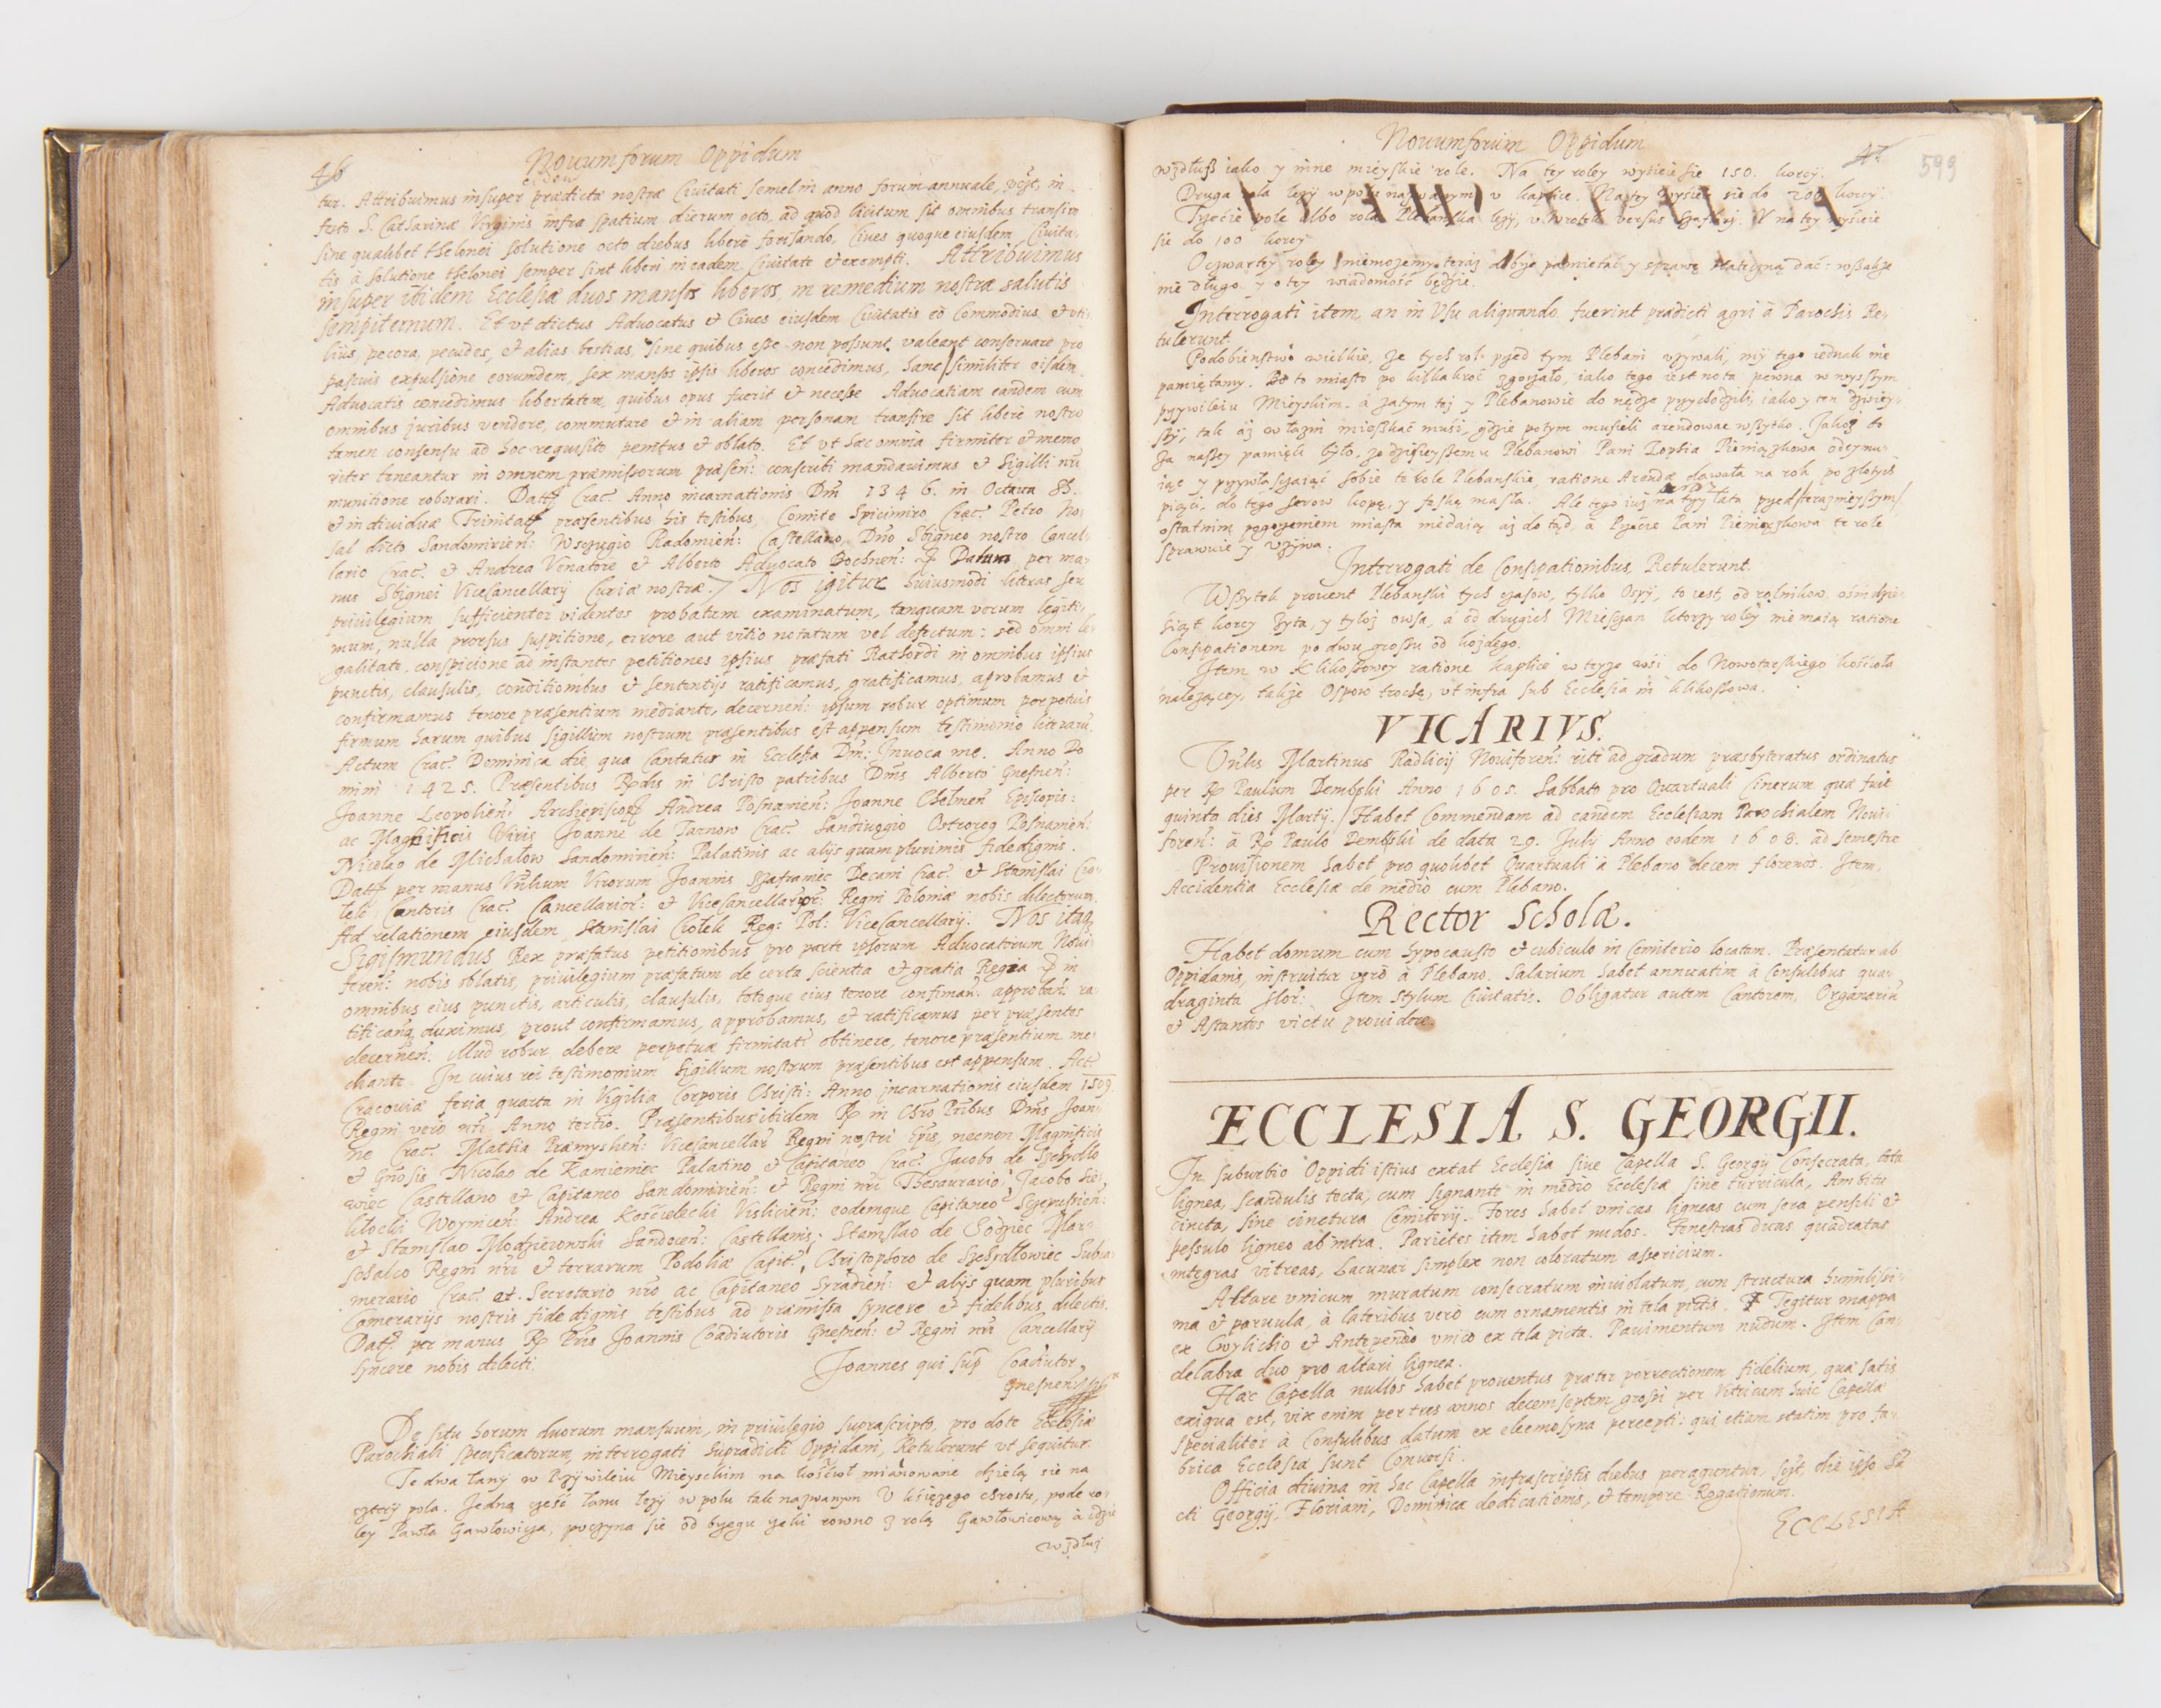 46
Nouumforum Oppidum
tur. Attribuimus insuper prædictæ nostræ Ciuitati semel in anno forum annuale, in
festo S. Catharinæ Virginis infra spatium dierum octo, ad quod licitum sit omnibus transire
sine qualibet thelonei solutione octo diebus liberè forisando, Ciues quoque eiusdem Ciuita-
tis à solutione thelonei semper sint liberi in eadem Ciuitate et exempti. Attribuimus
insuper ibidem Ecclesiæ duos mansos liberos, in remedium nostræ salutis
sempiternum. Et vt dictus Aduocatus et Ciues eiusdem Ciuitatis eò Commodius et vti-
lius, pecora, pecudes, et alias bestias, sine quibus esse non possunt, valeant conseruare pro
pascuis expulsione eorundem, sex mansos ipsis liberos concedimus, hanc similiter eisdem
Aduocatis concedimus libertatem, quibus opus fuerit et necesse Aduocatiam eandem cum
omnibus juribus vendere, commutare et in aliam personam transfire sit liberè nostro
tamen consensu ad hoc requisito penitus et oblato. Et vt hæc omnia firmiter et meno
riter teneantur in omnem præmissorum præsen: conscribi mandauimus et Sigilli nri
munitione roborari. Crac. Anno incarnationis Dni 1346. in Octaua SS.
et indiuiduæ Trinitatis præsentibus his testibus, Comite Spicimiro Crac. Petro
sal dicto Sandomirien: Radomien: Castellano, Dno Sbigneo nostro Cancel-
lario Crac. et Andrea Venatore et Alberto Aduocato Bochnen: Datum per ma-
nus Sbignei ViceCancellarij Curiæ nostræ. Nos igitur huiusmodi literas seu
priuilegium sufficienter videntes probatum examinatum, tanquam verum legiti-
mum, nulla prorsus suspitione, errore aut vitio notatum vel defectum: sed omni le-
galitate, conspicione ad instantes petitiones ipsius præfati Rathordi in omnibus ipsius
punctis, clausulis, conditionibus et sententijs ratificamus, gratificamus, aprobamus et
confirmamus tenore præsentium mediante, decernen: ipsum robur optimum perpetuis
firmum harum quibus Sigillum nostrum præsentibus est appensum testimonio literarū.
Actum Crac. Dominica die, qua Cantatur in Ecclesia Dni: Inuoca me. Anno Do
mini 1425. Præsentibus Rndis in Christo patribus Dnis Alberto Gnesnen:
Joanne Leopolien: Archiepiscopis Andrea Posnanien: Joanne Chelmen Episcopis:
ac Magnificis Viris Joanne de Tarnow Crac. Sandiuogio Ostrorog Posnanien:
Nicolao de Michalow Sandomirien: Palatinis ac alijs quam plurimis fide dignis.
per manus Vnlium Virorum Joannis Szafraniec Decani Crac. et Stanislai Cio-
lek Cantoris Crac. Cancellarior: et Vicecancellarior: Regni Poloniæ nobis dilectorum.
Ad relationem eiusdem Stanislai Ciolek Reg: Pol: ViceCancellarij. Nos itaq
Sigismundus Rex præfatus petitionibus pro parte ipsorum Aduocatorum Noui-
foren: nobis oblatis, priuilegium præfatum de certa scientia et gratia Regia in
omnibus eius punctis, articulis, clausulis, totoque eius tenore confirman: approban: ra-
tifican: duximus, prout confirmamus, approbamus, et ratificamus per præsentes
decernen: illud robur debere perpetuæ firmitatis obtinere, tenore præsentium me-
diante. In cuius rei testimonium Sigillum nostrum præsentibus est appensum. Act.
Cracouiæ feria quarta in Vigilia Corporis Christi: Anno incarnationis eiusdem 1509.
Regni vero nri Anno tertio. Præsentibus ibidem in Chro Pribus Dnis Joan-
ne Crac. Mathia Præmyslien: Vicecancellar Regni nostri Epis, necnon Magnificis
et Gnosis Nicolao de Kamieniec Palatino et Capitaneo Crac. Jacobo de Szydlo-
wiec Castellano et Capitaneo Sandomirien: et Regni nri Thesaurario, Jacobo Sie-
klucki Woynicen: Andrea Koscielecki Vislicien: eodemque Capitaneo
et Stanislao Mlodzieiowski Sandecen: Castellanis; Stanislao de Chodziec Mar-
schalco Regni nri et terrarum Podoliæ Capit. Christophoro de Szydlowiec Subca-
merario Crac. et Secretario nro ac Capitaneo Syradien: et alijs quam pluribus
Camerarijs nostris fide dignis testibus ad præmissa syncere et fidelibus dilectis.
per manus Pris Joannis Coadiutoris Gnesnen: et Regni nri Cancellarij
syncere nobis dilecti.
Joannes qui sup Coadiutor
Gnesnen:
De situ horum duorum mansuum, in priuilegio suprascripto, pro dote Ecclesiæ
Parochiali specificatorum, interrogati supradicti Oppidani, Retulerunt vt sequitur.
Te dwa łany w Przywileiu Mieyschim na kościoł mianowane dzielą sie na
cztery pola. Jedna część łanu leży w polu tak nazwanym V księżego chrostu, pode ro-
ley Pawła Gawłowicza, poczyna sie od brzegu rzeki rowno z rolą Gawłowicową à idzie
wzdłuż
Nouumforum Oppidum
47
599
wzdłuß iako y inne mieyskie role. Na tey roley wysieie sie 150. korcy.
Druga rola leży w polu nazwanym v kaplice. Na tey wysieie sie do 200 korcy.
Trzecie pole albo rola Plebanska leży, v Wrotek versus Szaflary. W na tey wysieie
sie do 100 korcy
Oczwartey roley niemożemy teraz dobrze pamietać y sprawę statecną dać: wßakże
nie długo y o tey wiadomość będzie.
Interrogati item an in Vsu aliquando fuerint prædicti agri à Parochis Re-
tulerunt.
Podobienstwo wielkie, że tych rol przed tym Plebani vżywali, my tego iednak nie
pamiętamy. Bo to miasto po kilkakroć zgorzało, iako tego iest nota pewna w wyższym
przywileiu Mieyskim. à zatym też y Plebanowie do nędze przychodzili, iako y ten dzisiey-
szy, tak aż w łazni mießkać musi, gdzie potym musieli arendować wßytko. Jakoż to
za naßey pamięci było, że dzisieyßemu Plebanowi Pani Zophia Pieniążkowa odeymu-
iąc y przywłaszczaiąc sobie te role Plebanskie, ratione Arendæ dawała na rok po złotych
pięći, do tego serow kopę, y faskę masła. Ale tego iuż na trzy lata przed /teraznieyszym/
ostatnim pogorzeniem miasta niedaią aż do tąd, à Przecie Pani Pieniążkowa te role
sprawuie y vżywa.
Interrogati de Consipationibus Retulerunt.
Wßytek prouent Plebanski tych czasow, tylko Ospy, to iest, od rolnikow, ośmdzie-
siąt korcy żyta, y tyloż owsa, à od drugich Miesczan ktorzy roley nie maią ratione
Consipationem po dwu grossu od kożdego.
Item w Klikoßowey ratione kaplice w teyze wśi do Nowotarskiego kościoła
należącey, takze Ospow trochę, vt infra sub Ecclesia in Klikoßowa.
VICARIVS.
Vnlis Martinus Radlicij Nouiforen: ritè ad gradum præsbyteratus ordinatus
per Paulum Dembski Anno 1605. Sabbato pro Quartuali Cinerum quæ fuit
quinta dies Martij. Habet Commendam ad eandem Ecclesiam Parochialem Noui-
foren: à Paulo Dembski de data 29. July Anno eodem 1608. ad semestre
Prouisionem habet pro quolibet Quartuali à Plebano decem florenos. Item,
Accidentia Ecclesiæ de medio cum Plebano.
Rector Scholæ.
Habet domum cum hypocausto et cubiculo in Cemiterio locatam. Præsentatur ab
Oppidanis, instruitur verò à Plebano. Salarium habet annuatim à Consulibus qua-
draginta flor: Item Stylum Ciuitatis. Obligatur autem Cantorem, Organariū
et Astantes victu prouidere.
ECCLESIA S. GEORGII.
In suburbio Oppidi istius extat Ecclesia siue Capella S. Georgij Consecrata, tota
lignea, scandulis tecta, cum signante in medio Ecclesiæ siue turricula, Ambitu
cincta, sine cinctura Cemiterij. Fores habet vnicas ligneas cum sera pensili et
pessulo ligneo ab intra. Parietes item habet nudos. Fenestras duas quadratas
integras vitreas, Lacunar simplex non coloratum assericium.
Altare vnicum, muratum consecratum inuiolatum, cum structura humilissi-
ma et paruula, à lateribus verò cum ornamentis in tela pictis. Tegitur mappa
ex Cwylichio et Antependio vnico ex tela picta. Pauimentum nudum. Item Can-
delabra duo pro altari lignea.
Hæc Capella nullos habet prouentus præter porrectionem fidelium, quæ satis
exigua est, vix enim per tres annos decem septem grossi per Vitricum huic Capellæ
specialiter à Consulibus datum ex eleemosyna percepti: qui etiam statim pro fa-
brica Ecclesiæ sunt Conuersi.
Officia diuina in hac Capella infrascriptis diebus peraguntur, die ipso Sā
cti Georgij, Floriani, Dominica dedicationis, et tempore Rogationum.
ECCLESIA